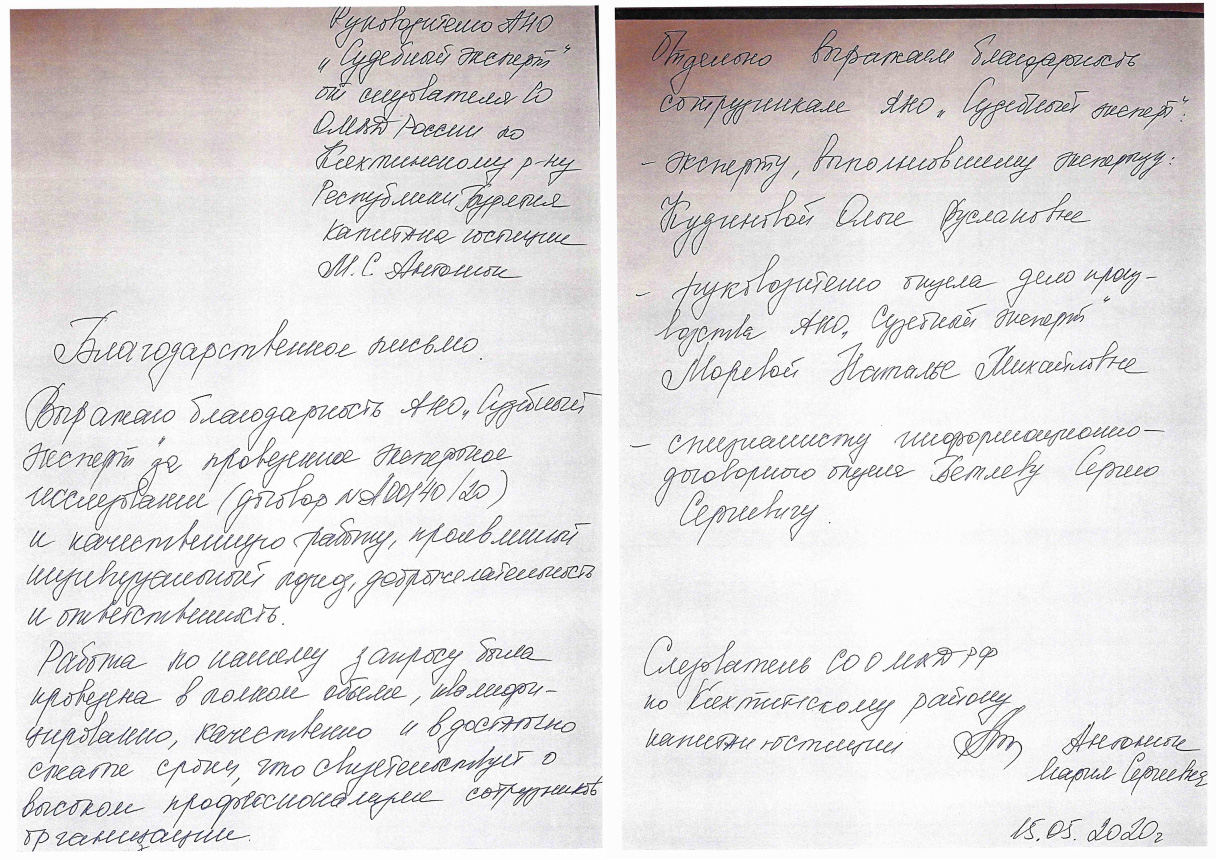 Руководителю АНО
„Судебный эксперт“
от следователя СО
ОМВД России по
Кяхтинскому р-ну
Республики Бурятия
капитана юстиции
М.С. Антонюк
Благодарственное письмо.
Выражаю благодарность АНО „Судебный
эксперт“ за проведенное экспертное
исследование (договор №100140/20)
и качественную работу, проявленный
индивидуальный подход, доброжелательность
и ответственность.
Работа по нашему запросу была
проведена в полном объеме, квалифи-
цированно, качественно и в достаточно
сжатые сроки, что свидетельствует о
высоком профессионализме сотрудников
организации.
Отдельно выражаем благодарность
сотрудникам АНО „Судебный эксперт“:
- эксперту, выполнившему экспертизу:
Кудиновой Ольге Руслановне
- руководителю отдела делопроиз-
водства АНО „Судебный эксперт“
Моревой Наталье Михайловне
- специалисту информационно-
договорного отдела Сергею
Сергеевичу.
Следователь СО ОМВД РФ
по Кяхтинскому району
капитан юстиции Антонюк
Мария Сергеевна
15.05.2020г